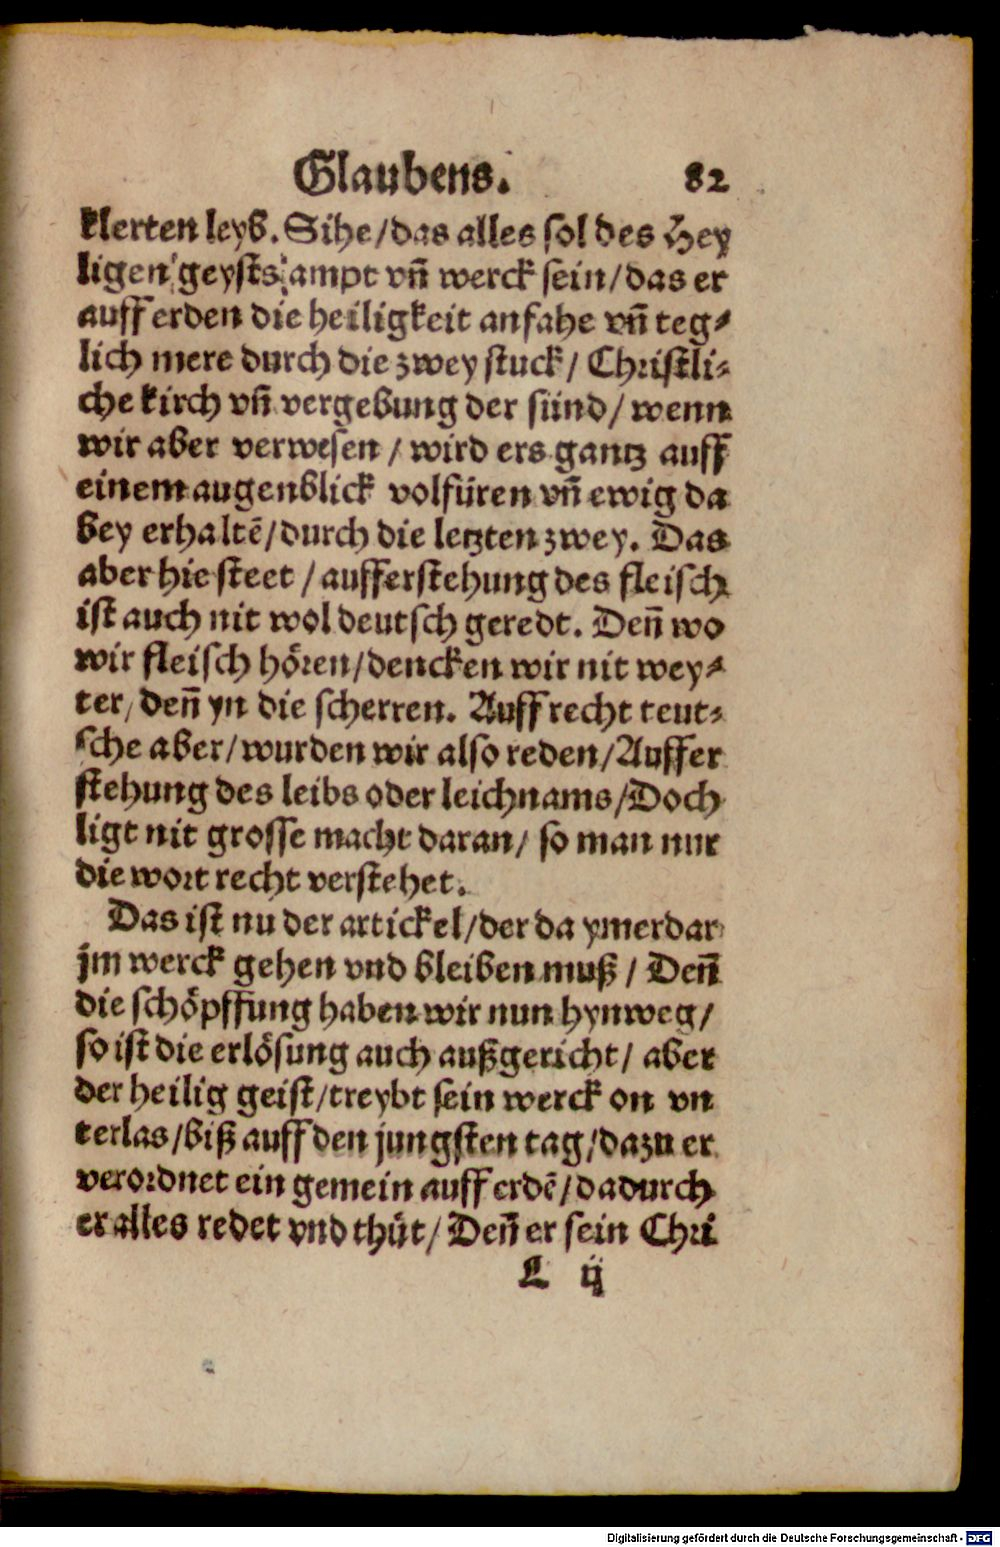 Glaubens. 82
klerten leyb. Sihe/das alles sol des Hey
ligen geysts ampt vñ werck sein/das er
auff erden die heiligkeit anfahe vñ teg⸗
lich mere durch die zwey stuck/ Christli⸗
che kirch vñ vergebung der sünd/ wenn
wir aber verwesen/ wird ers gantz auff
einem augenblick volfüren vñ ewig da
bey erhaltē/durch die letzten zwey. Das
aber hie steet/ aufferstehung des fleisch
ist auch nit wol deutsch geredt. Deñ wo
wir fleisch hören/dencken wir nit wey⸗
ter/ deñ yn die scherren. Auff recht teut⸗
sche aber/wurden wir also reden/Auffer
stehung des leibs oder leichnams/Doch
ligt nit grosse macht daran/ so man nur
die wort recht verstehet.
Das ist nu der artickel/der da ymerdar
jm werck gehen vnd bleiben muß/ Deñ
die schöpffung haben wir nun hynweg/
so ist die erlösung auch außgericht/ aber
der heilig geist/treybt sein werck on vn
terlas/biß auff den jungsten tag/dazu er
verordnet ein gemein auff erdē/dadurch
er alles redet vnd thüt/ Deñ er sein Chri
L ij
Digitalisierung gefördert durch die Deutsche Forschungsgemeinschaft - DFG